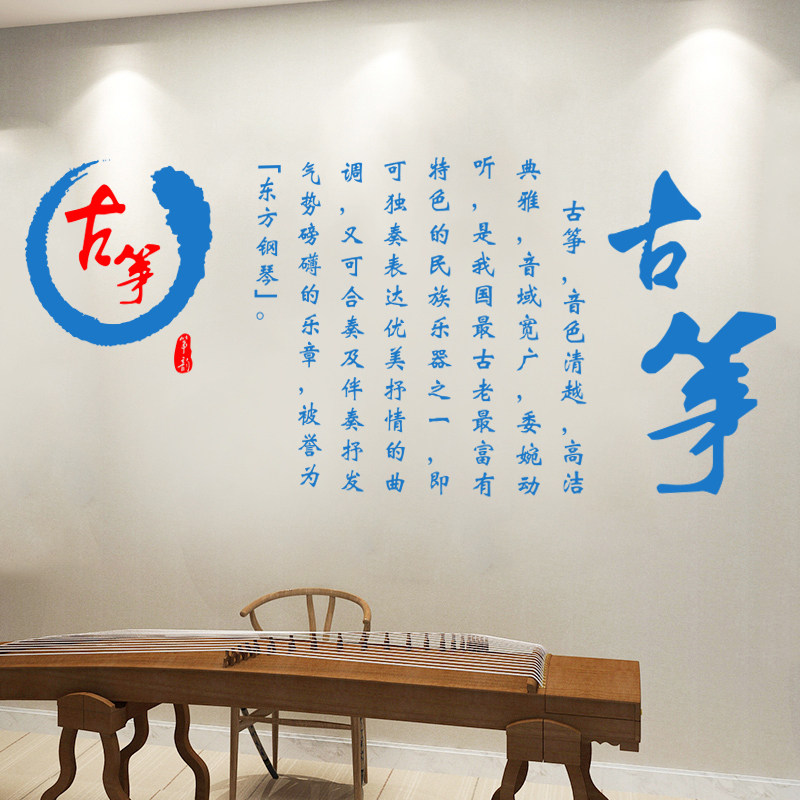 古筝
古筝，音色清越，高洁
典雅，音域宽广，委婉动
听，是我国最古老最富有
特色的民族乐器之一，即
可独奏表达优美抒情的曲
调，又可合奏及伴奏抒发
气势磅礴的乐章，被誉为
「东方钢琴」。
古筝
筝韵